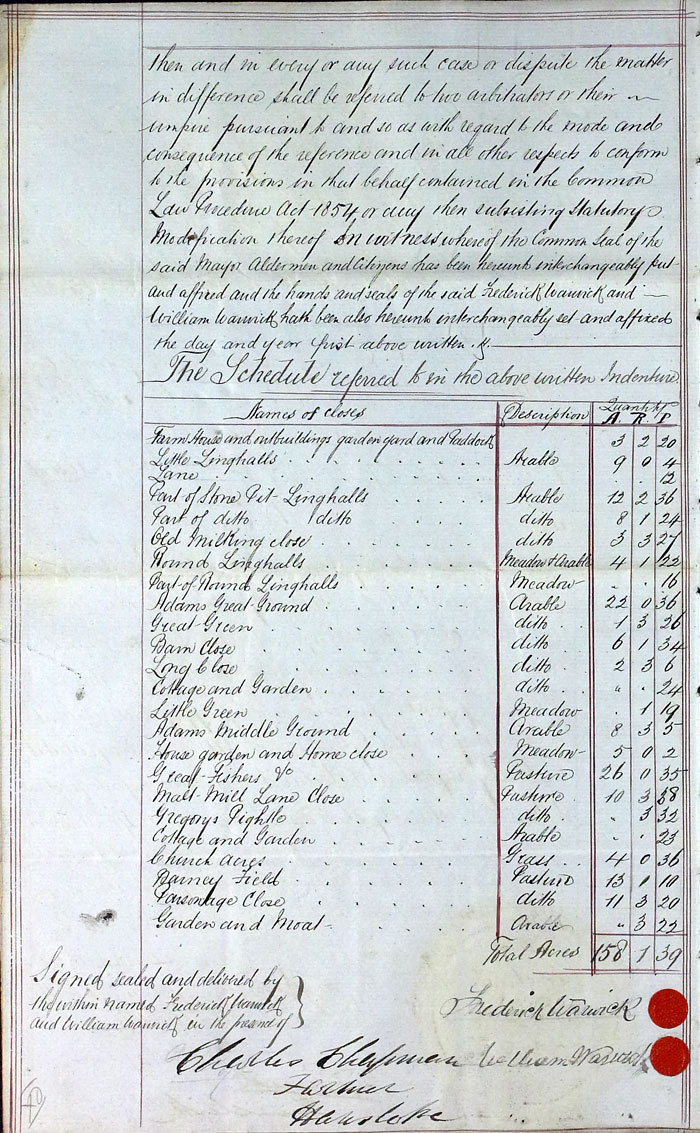 then and in every or any such case or dispute the matter
in difference shall be referred to two arbitrators or their
umpire pursuant to and so as with regard to the mode and
consequence of the reference and in all other respects to conform
to the provisions in that behalf contained in the Common
Law Procedure Act 1854 or any then subsisting Statutory
Modification thereof In witness whereof the Common Seal of the
said Mayor Aldermen and Citizens has been hereunto interchangeably put
and affixed and the hands and seals of the said Frederick Warwick and
William Warwick hath been also hereunto interchangeably set and affixed
the day and year first above written.
The Schedule referred to in the above written Indenture.
Names of closes Description Quantity
A. R. P
Farm House and outbuildings garden yard and Paddock 3 2 20
Little Linghalls Arable 9 0 4
Lane . . 12
Part of Stone Pit Linghalls Arable 12 2 36
Part of ditto ditto ditto 8 1 24
Old Milking close ditto 3 3 27
Round Linghalls Meadow & Arable 4 1 22
Part of Round Linghalls Meadow . . 16
Adams Great Ground Arable 22 0 36
Great Green ditto 1 3 26
Barn Close ditto 6 1 34
Long Close ditto 2 3 6
Cottage and Garden ditto " . 24
Little Green Meadow . 1 19
Adams Middle Ground Arable 8 3 5
House garden and Home close Meadow 5 0 2
Great Fishers &c Pasture 26 0 35
Malt Mill Lane Close Pasture 10 3 38
Gregorys Pightle ditto . 3 32
Cottage and Garden Arable . . 23
Church Acres Grass 4 0 36
Barney Field Pasture 13 1 10
Parsonage Close ditto 11 3 20
Garden and Moat Arable " 3 22
Total Acres 158 1 39
Signed sealed and delivered by
the within named Frederick Warwick
and William Warwick in the presence of
Frederick Warwick
William Warwick
Charles Chapman
Farmer
Hanslope